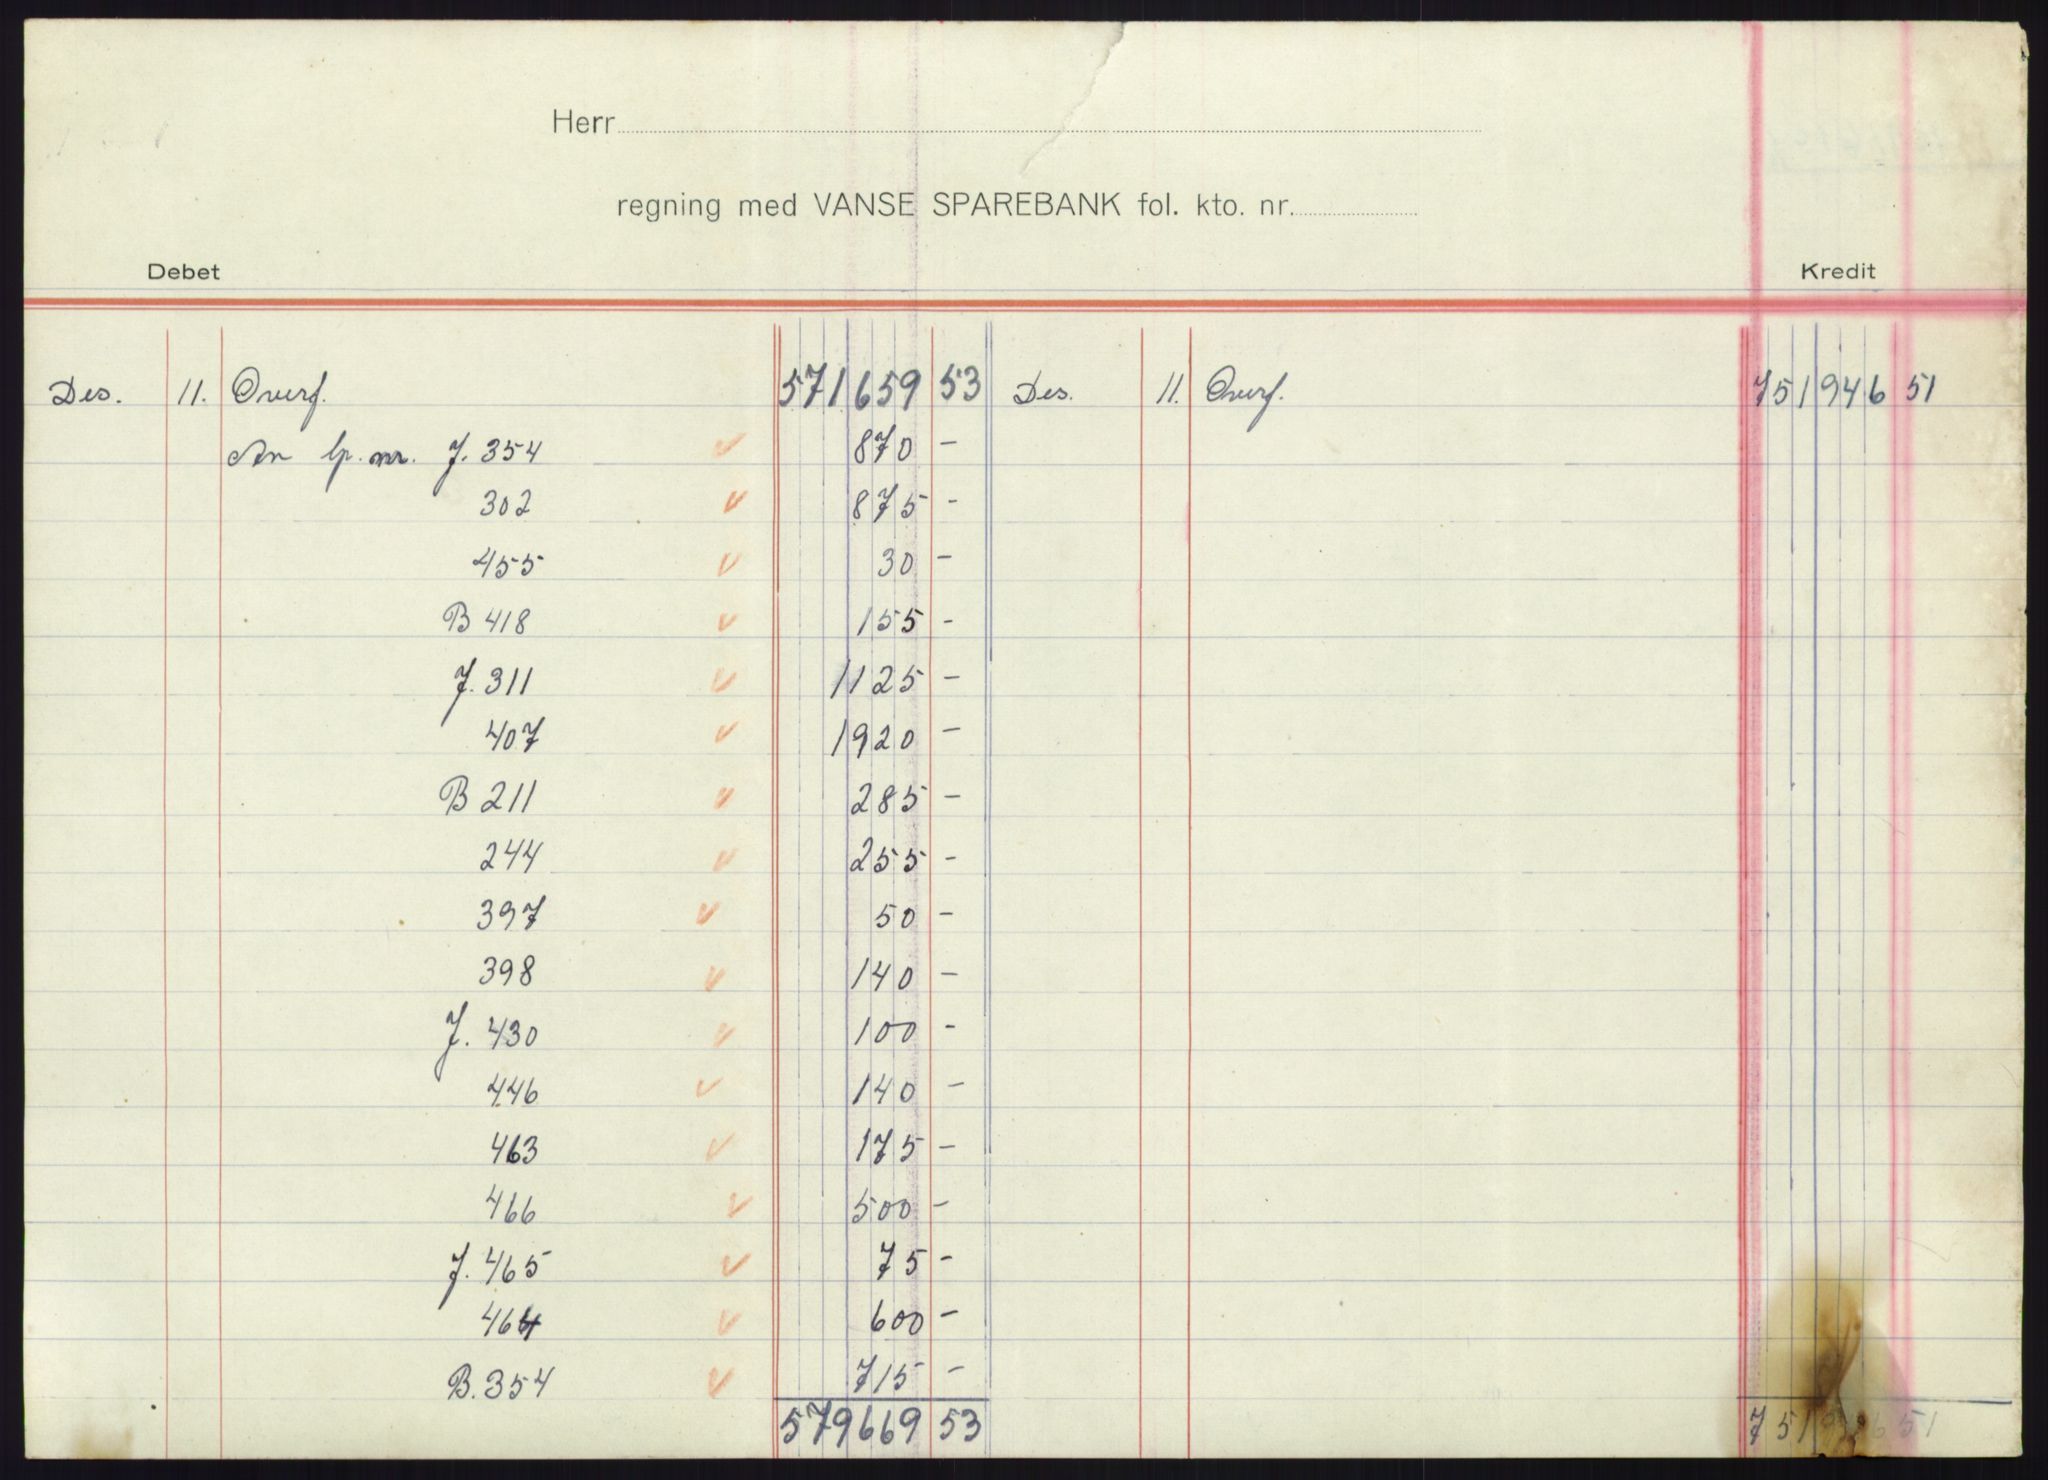 Herr
regning med VANSE SPAREBANK fol. kto. nr.
Debet Kredit
Des. 11. Overf. 571659 53 Des. 11. Overf. 751946 51
An lp. nr. J. 354 870 -
302 875 -
455 30 -
B 418 155 -
J. 311 1125 -
407 1920 -
B 211 285 -
244 255 -
397 50 -
398 140 -
J. 430 100 -
446 140 -
463 175 -
466 500 -
J. 465 75 -
464 600 -
B. 354 715 -
579669 53 751946 51